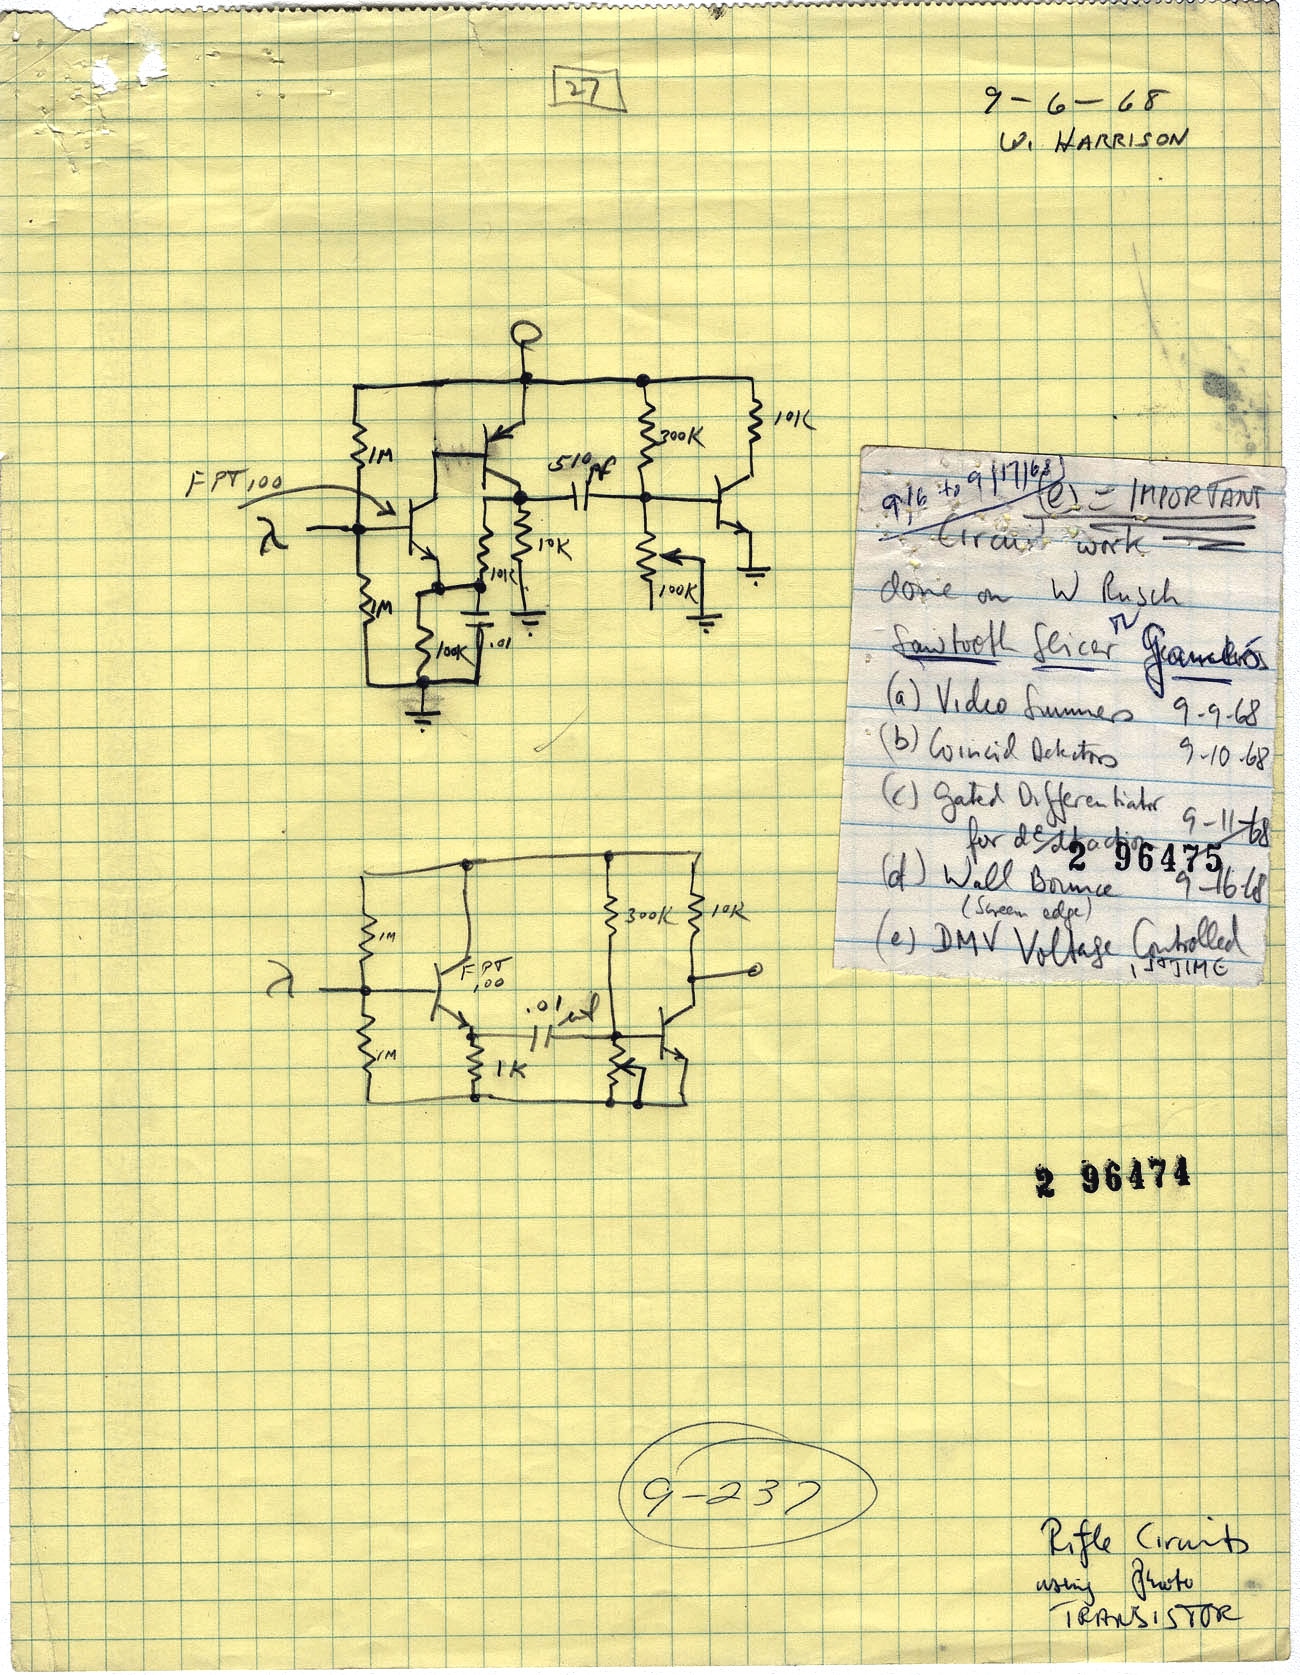 27
9-6-68
W. HARRISON
1M
FPT100
λ
1M
510 pf
300K
10K
10K
10K
100K
100K
.01
9/6 to 9/17/68
(e) - IMPORTANT
Circuit work
done on W Rusch
Sawtooth Slicer
(a) Video Summers 9-9-68
(b) Coincid Detectors 9-10-68
(c) Gated Differentiator
for 9-11-68
2 96475
(d) Wall Bounce 9-16-68
(Screen edge)
(e) DMV Voltage Controlled
300K
10K
1M
FPT
100
λ
.01
1M
1K
2 96474
9-237
Rifle Circuits
using Photo
TRANSISTOR